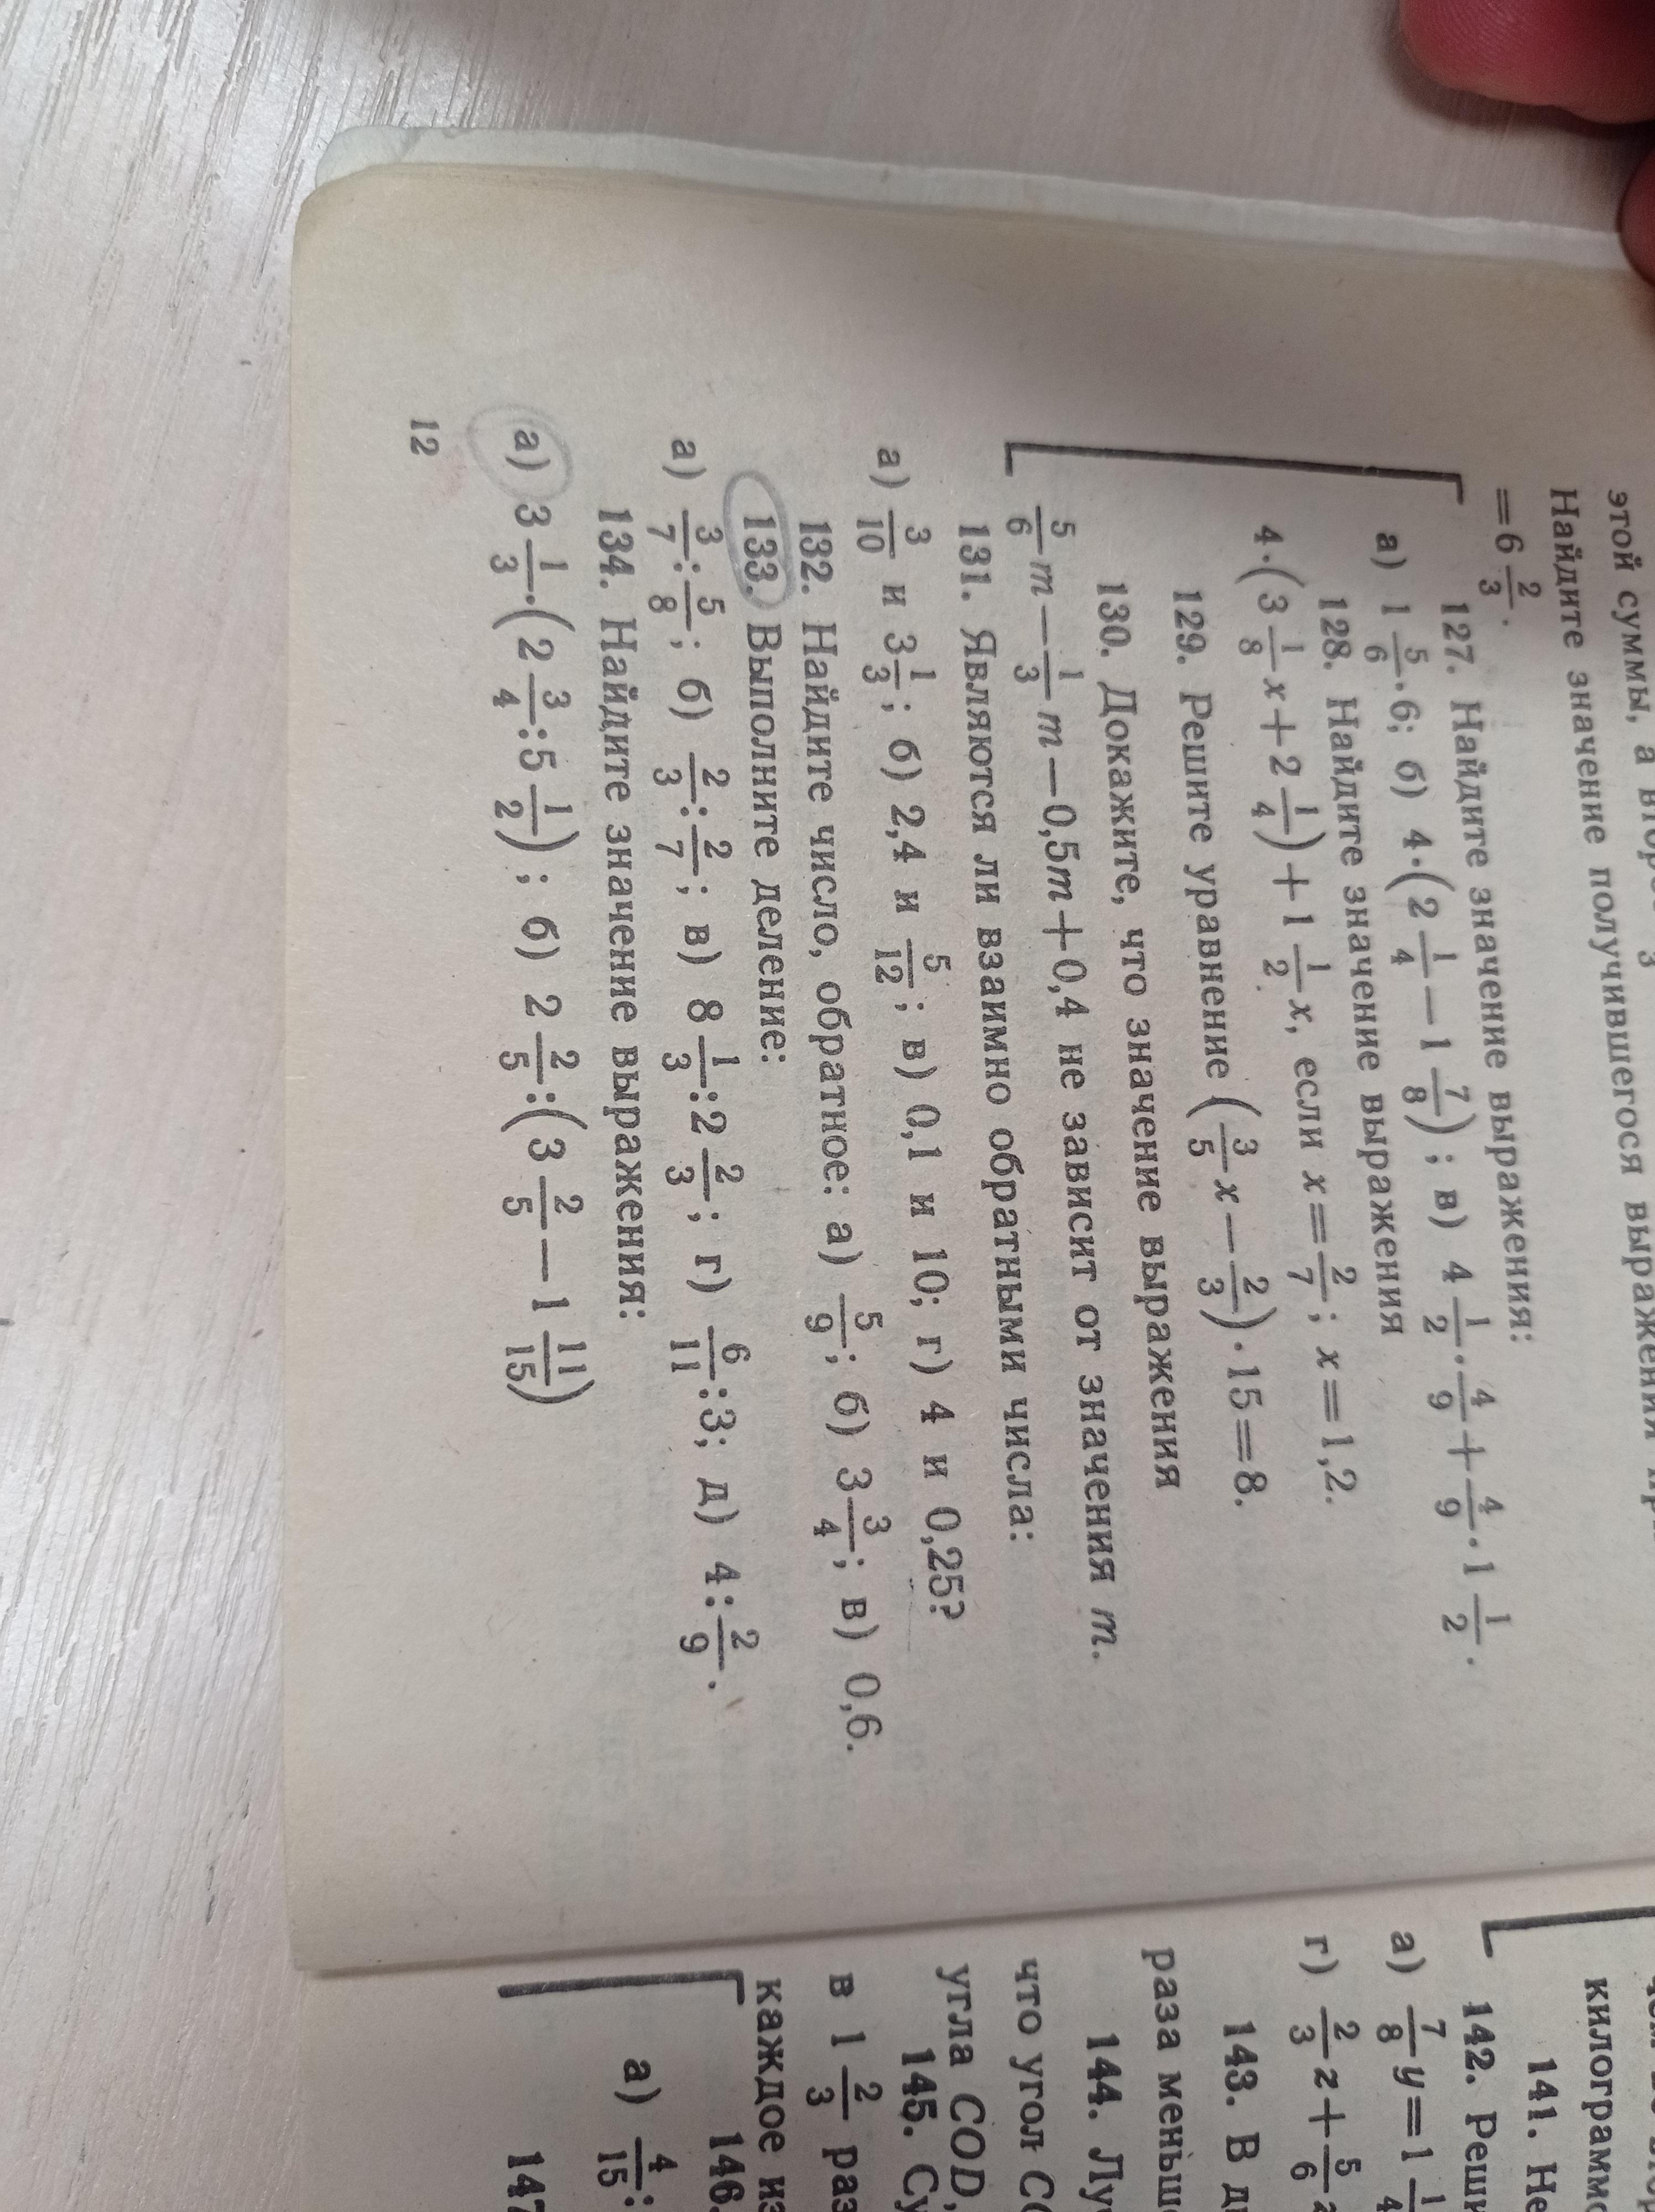 этой суммы, а
Найдите значение получившегося выражения
=6 2/3.
127. Найдите значение выражения:
а) 1 5/6·6; б) 4·(2 1/4−1 7/8); в) 4 1/2·4/9+4/9·1 1/2.
128. Найдите значение выражения
4·(3 1/8x+2 1/4)+1 1/2x, если x=2/7; x=1,2.
129. Решите уравнение (3/5x−2/3)·15=8.
130. Докажите, что значение выражения
5/6m−1/3m−0,5m+0,4 не зависит от значения m.
131. Являются ли взаимно обратными числа:
а) 3/10 и 3 1/3; б) 2,4 и 5/12; в) 0,1 и 10; г) 4 и 0,25?
132. Найдите число, обратное: а) 5/9; б) 3 3/4; в) 0,6.
133. Выполните деление:
а) 3/7:5/8; б) 2/3:2/7; в) 8 1/3:2 2/3; г) 6/11:3; д) 4:2/9.
134. Найдите значение выражения:
а) 3 1/3·(2 3/4:5 1/2); б) 2 2/5:(3 2/5−1 11/15)
12
килограмм
141. Не
142. Реши
а) 7/8y=1
г) 2/3z+5/6
143. В д
раза меньш
144. Лу
что угол C
угла COD,
145. Су
в 1 2/3 раз
каждое из
146.
а) 4/15:
147